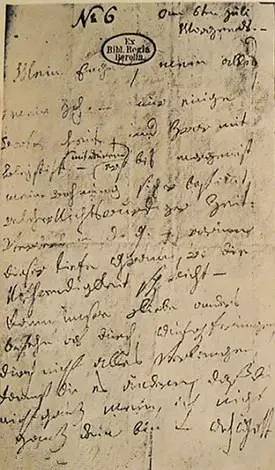 No 6 am 6ten Juli
Morgends. —
Ex
Bibl. Regia
Berolin.
Mein Engel, mein alles
mein Ich. — nur einige
Worte heute, und zwar mit
Bleystift — (mit deinem) bis morgen ist
meine Wohnung sicher bestimmt,
welcher Zeit-
verderb in d. g. — warum
dieser tiefe Gram, wo die
Nothwendigkeit spricht —
Kann unsre Liebe anders
bestehn als durch Aufopferungen,
durch nicht alles verlangen,
kannst du es ändern, daß du
nicht ganz mein, ich nicht
ganz dein bin — Ach Gott